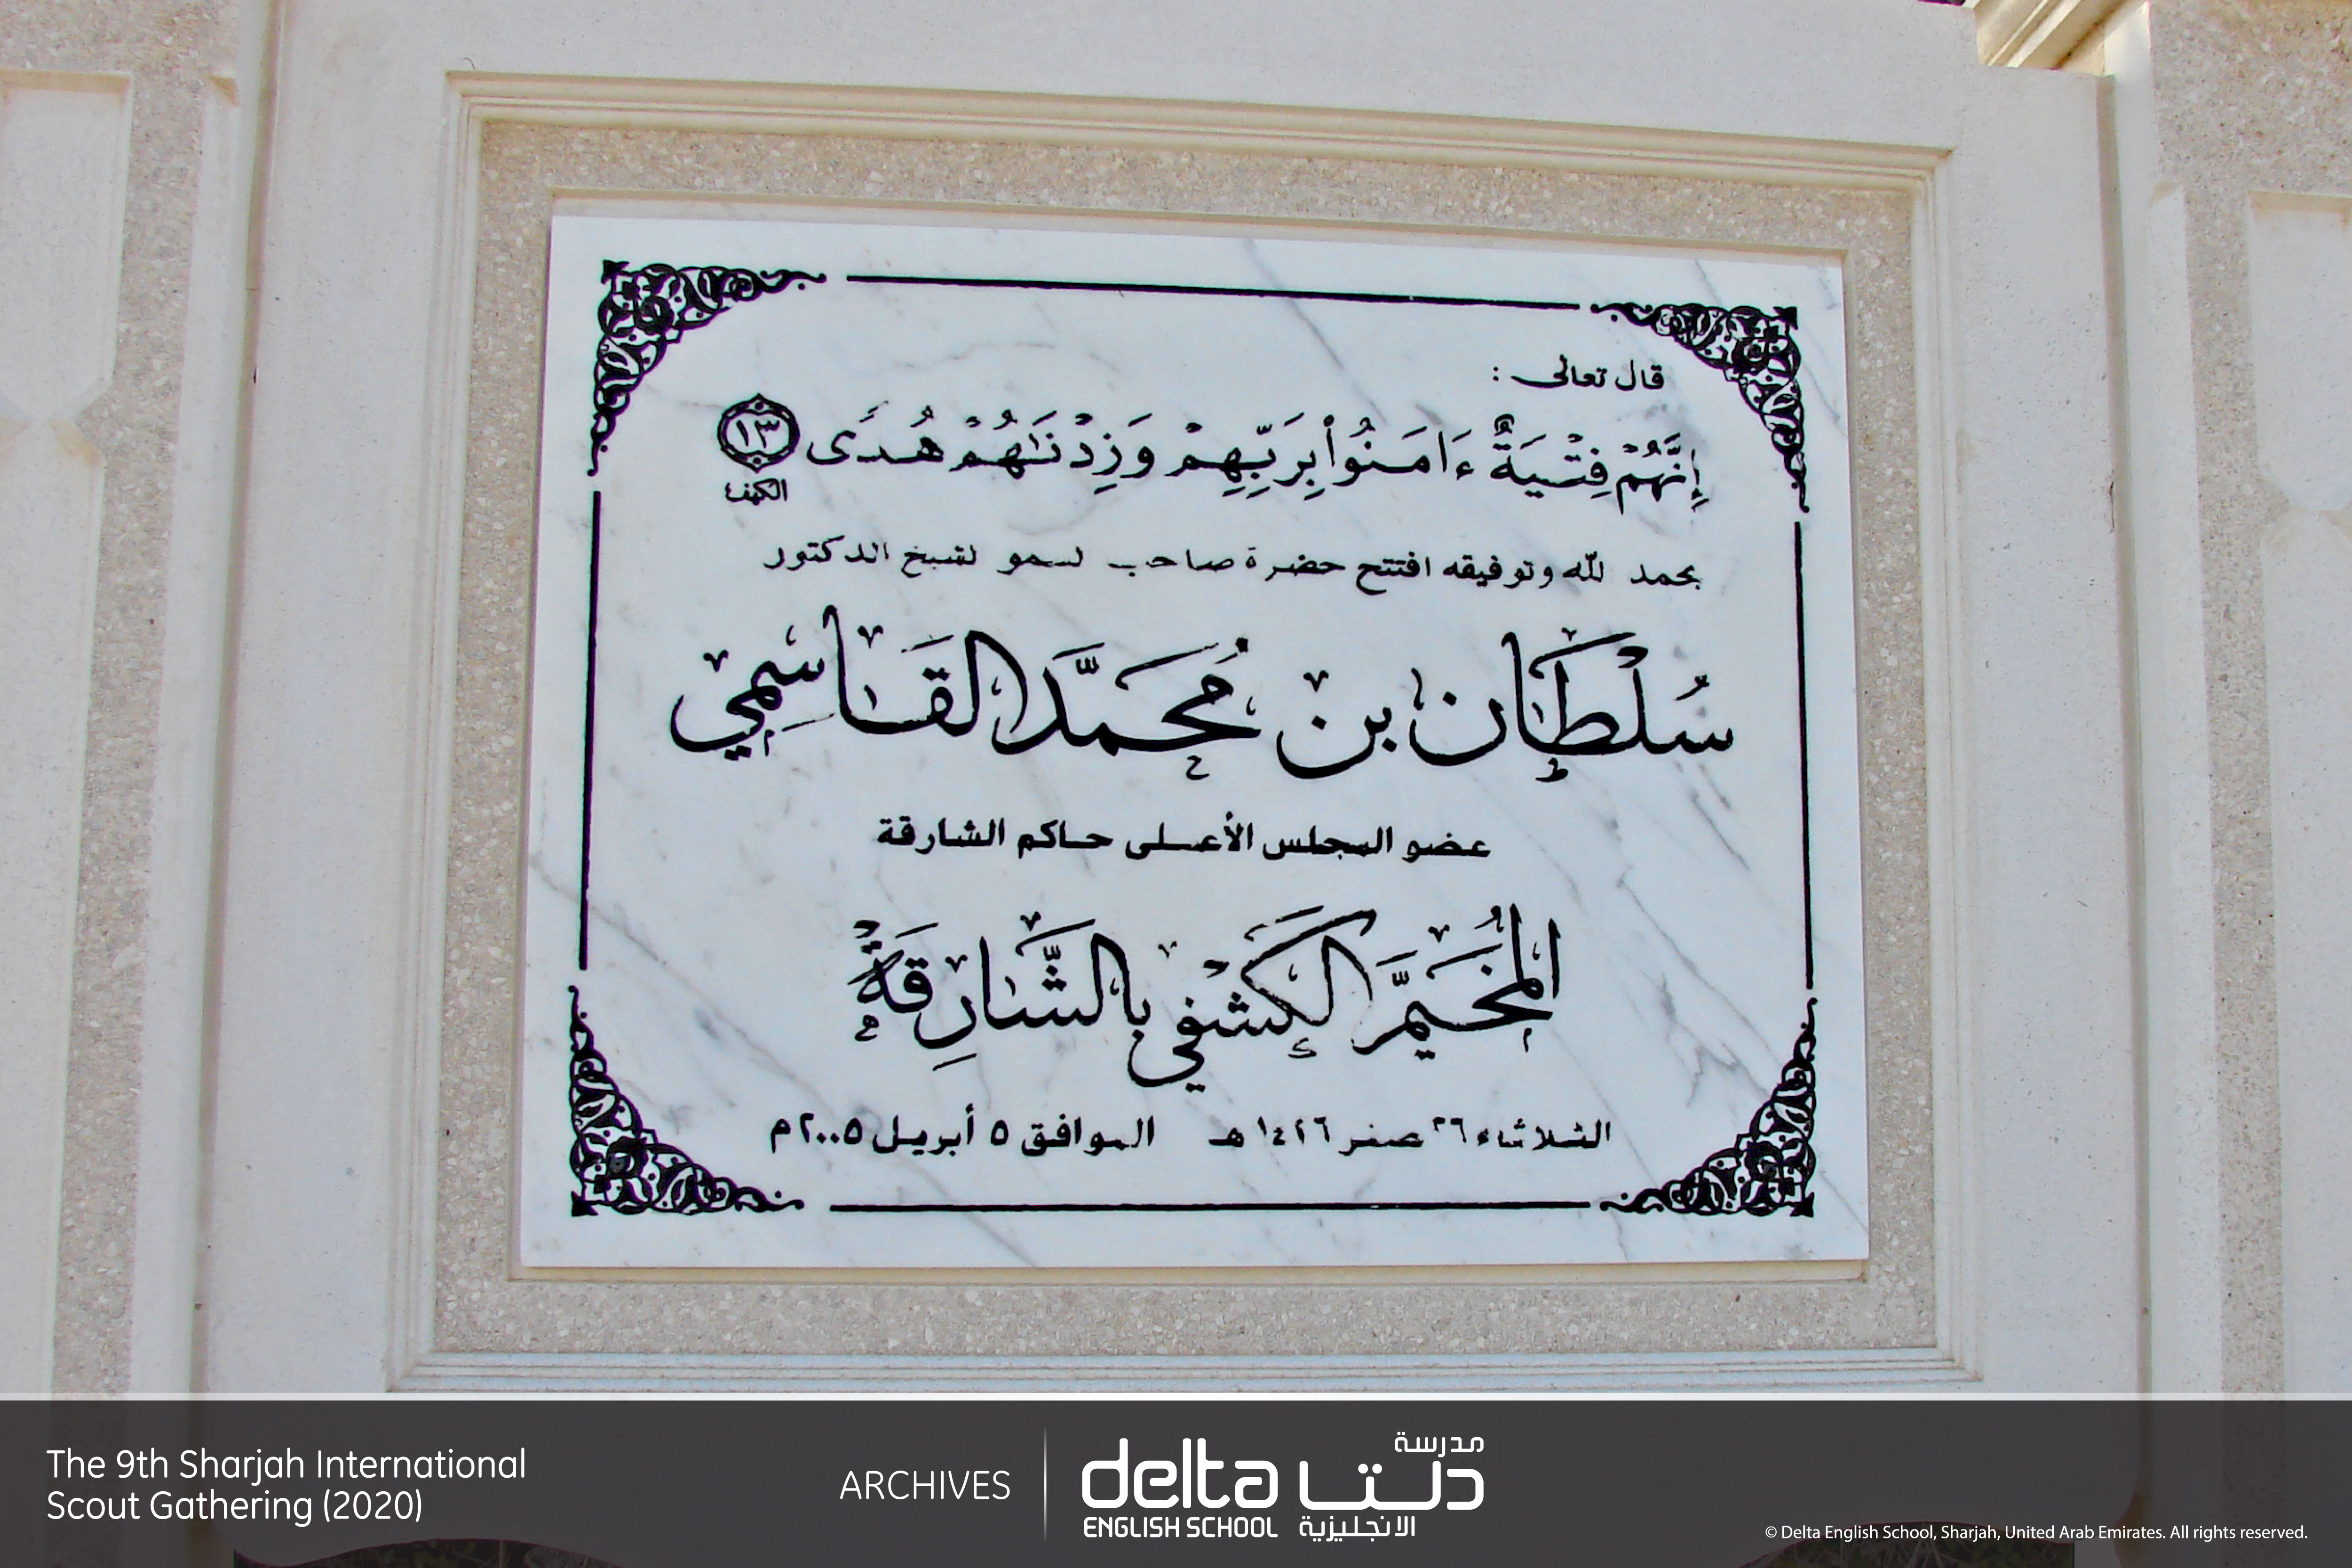 قال تعالى :
إِنَّهُمْ فِتْيَةٌ ءَامَنُواْ بِرَبِّهِمْ وَزِدْنَٰهُمْ هُدًى ١٣
الكهف
بحمد لله وتوفيقه افتتح حضرة صاحب لسمو لشيخ الدكتور
سُلْطَان بن مُحَمَّد القَاسِمِي
عضو المجلس الأعلى حاكم الشارقة
المُخَيَّم الكَشْفِي بالشَّارِقَةْ
الثلاثاء ٢٦ صفر ١٤٢٦ هـ الموافق ٥ أبريل ٢٠٠٥م
The 9th Sharjah International
Scout Gathering (2020)
ARCHIVES
delta
ENGLISH SCHOOL
مدرسة
دلتا
الانجليزية
© Delta English School, Sharjah, United Arab Emirates. All rights reserved.